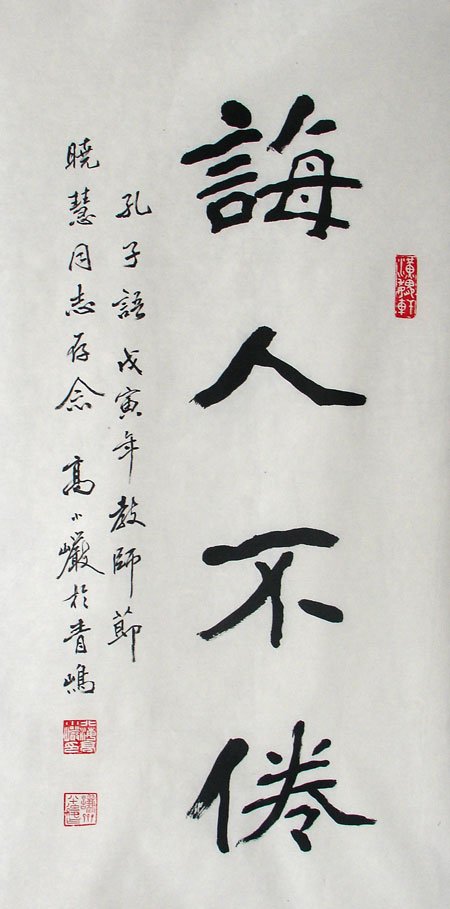 誨人不倦
孔子語戊寅年教師節
曉慧同志存念 高小巖於青島